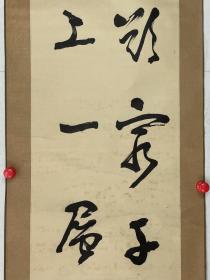 欲窮千
上一層